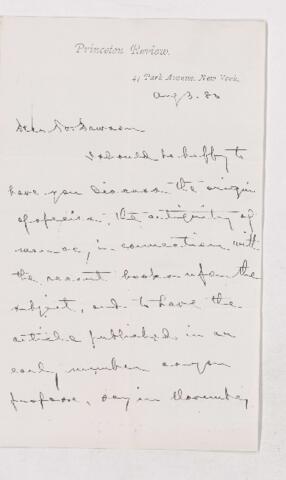 Princeton Review.
41 Park Avenue, New York.
Aug 3. 80
Dear Dr. Dawson
I should be happy to
have you discuss the origin
of species, the antiquity of
man &c, in connection with
the recent books upon the
subject, and to have the
article published in an
early number as you
propose, say in November,